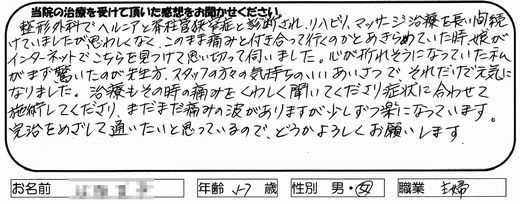 当院の治療を受けて頂いた感想をお聞かせください。
整形外科でヘルニアと脊柱管狭窄症と診断され、リハビリ、マッサージ治療を長い間続
けていましたが思わしくなく、このまま痛みと付き合って行くのかとあきらめていた時、娘が
インターネットでこちらを見つけて思い切って伺いました。心が折れそうになっていた私
がまず驚いたのが先生方、スタッフの方々の気持ちのいいあいさつで、それだけで元気に
なりました。治療もその時の痛みをくわしく聞いてくださり症状に合わせて
施術してくださり、まだまだ痛みの波がありますが少しずつ楽になっています。
完治をめざして通いたいと思っているので、どうかよろしくお願いします。
お名前 年齢 57 歳 性別 男・女 職業 主婦